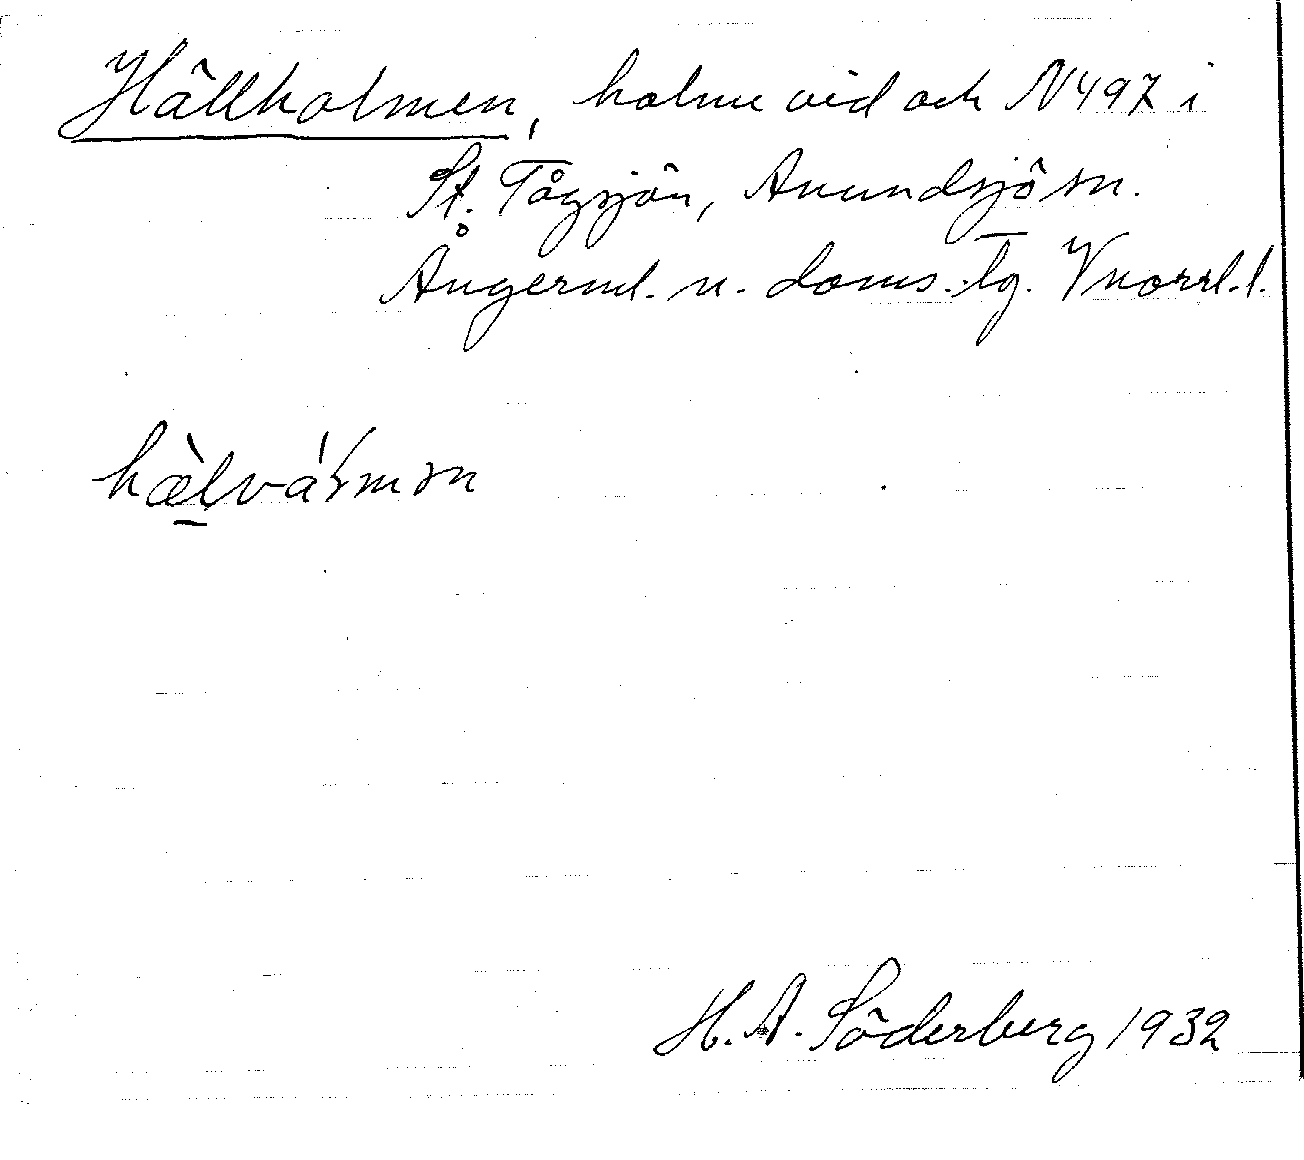 Hällholmen, holme vid och N 497 i
St. Tågsjön, Anundsjö sn.
Ångerml. n. doms. tg. Vnorrl. l.
H. A. Söderberg 1932